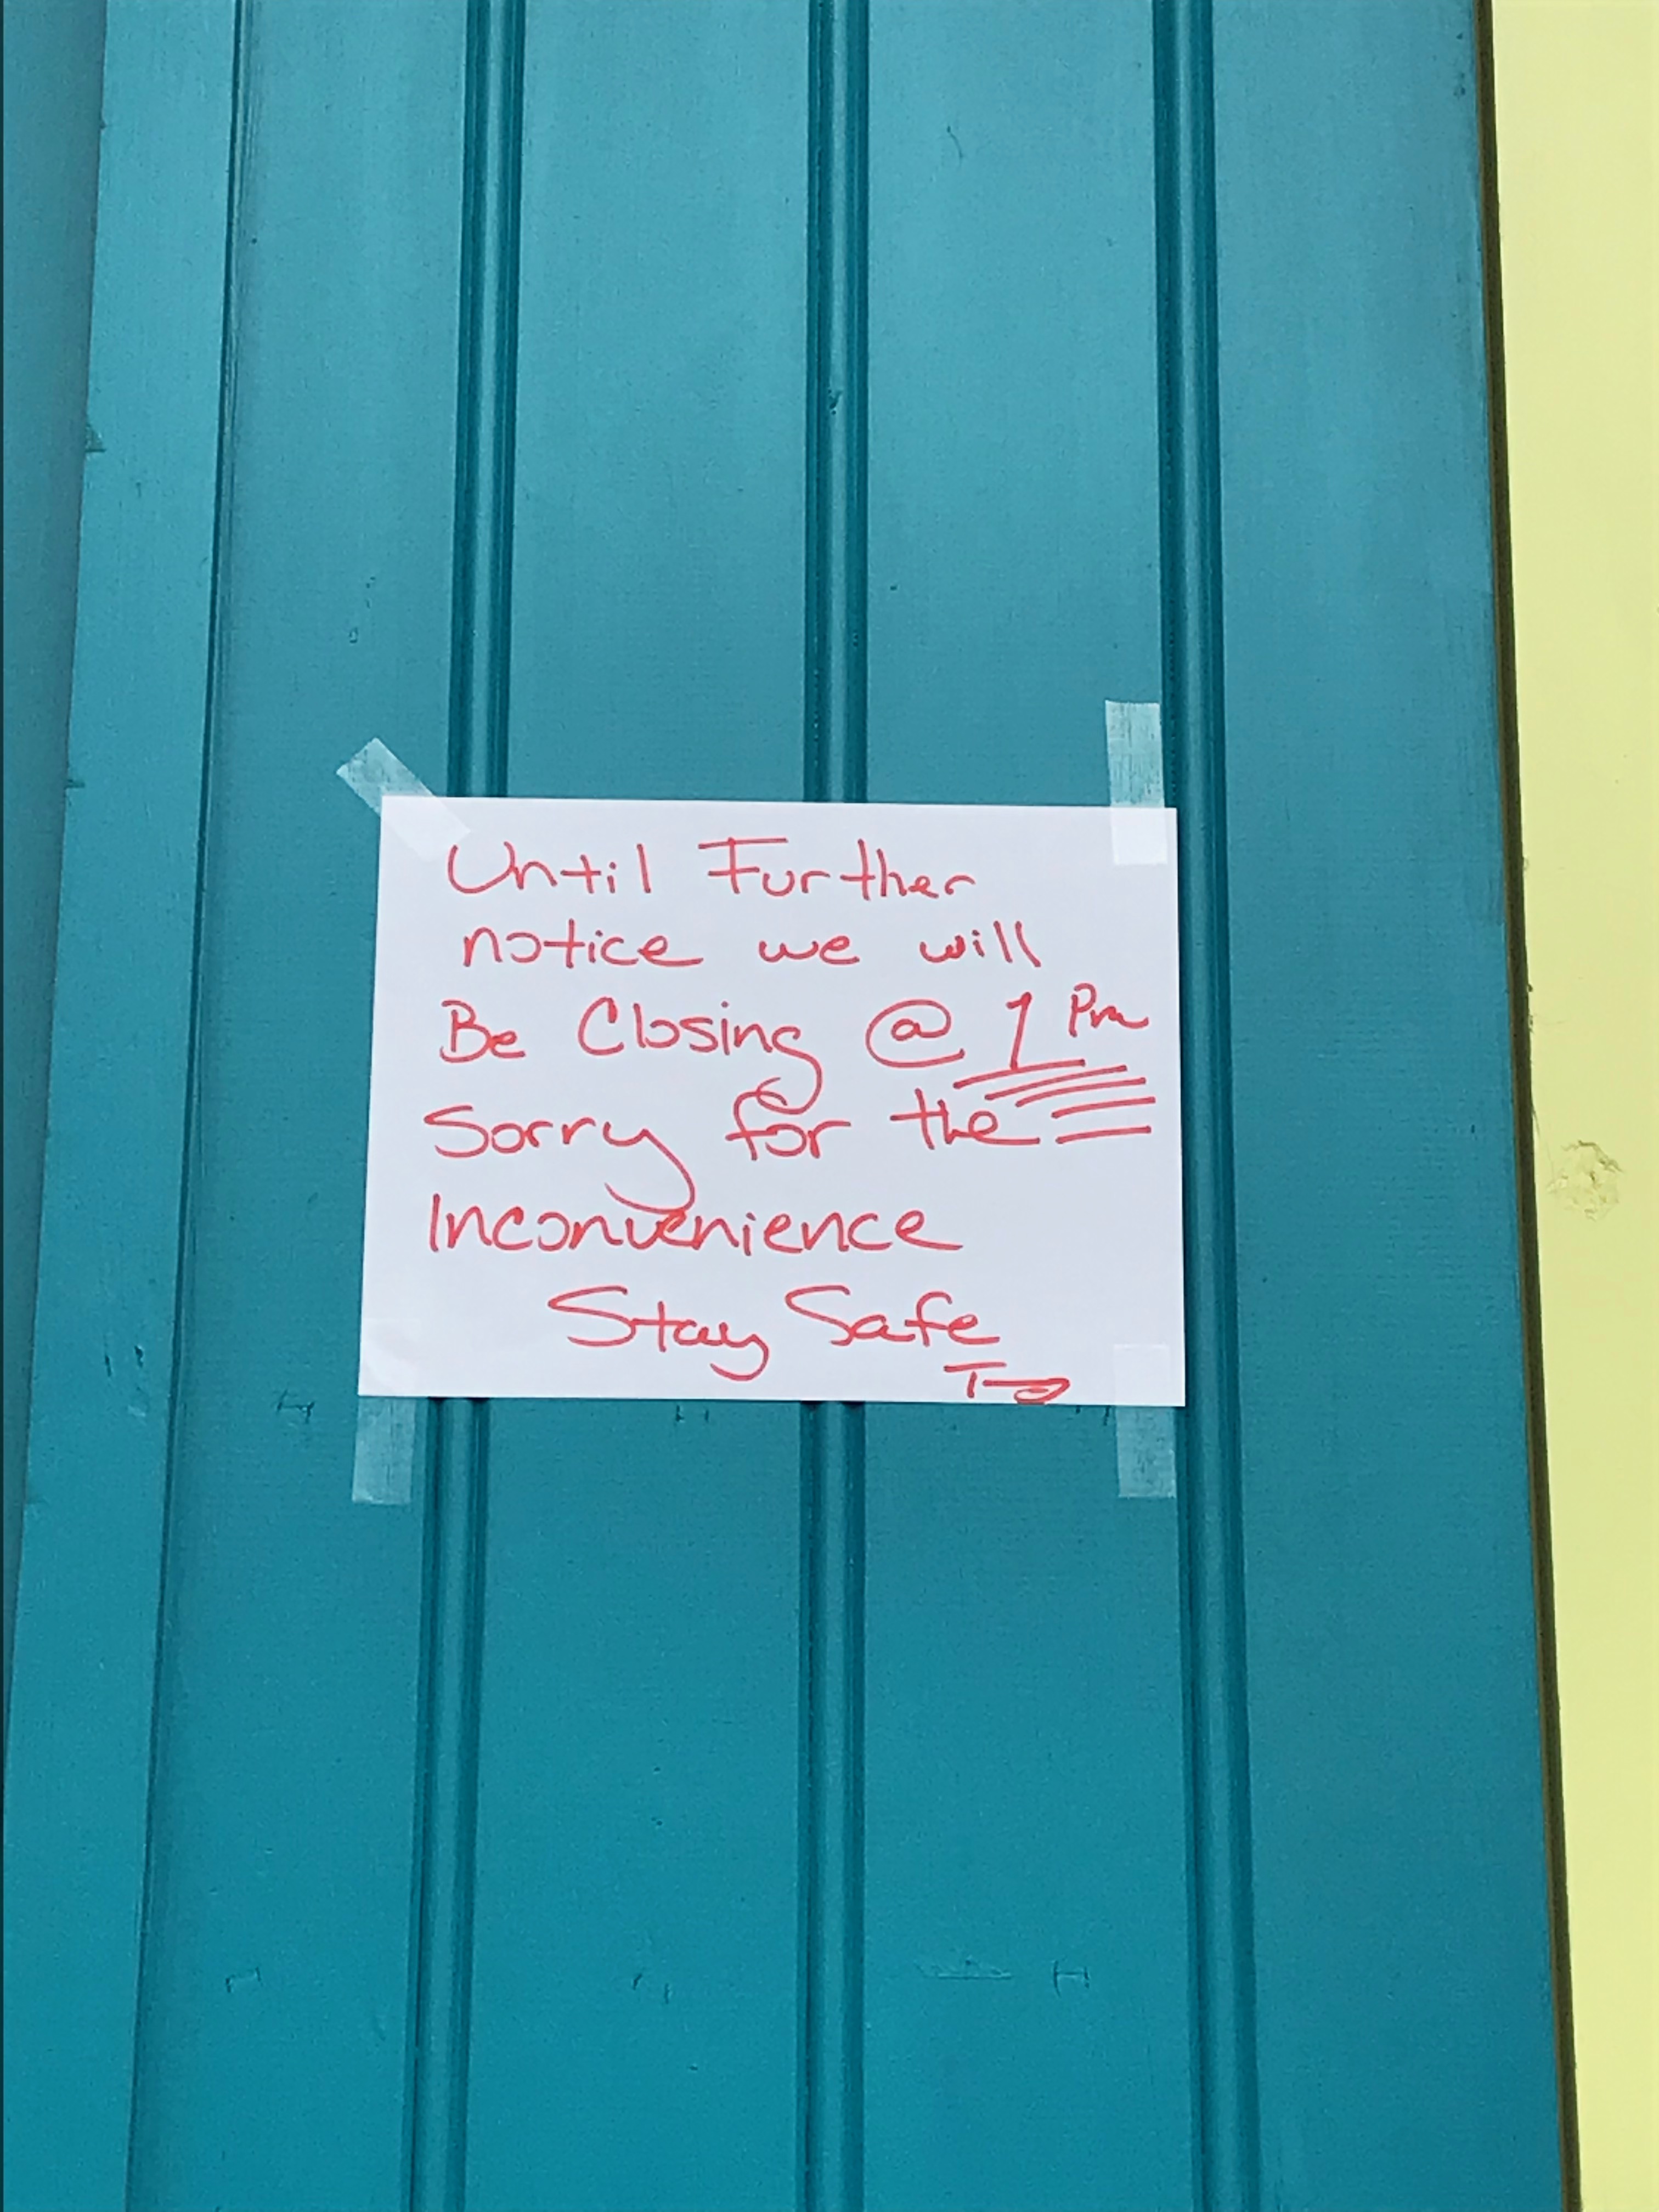 Until Further
notice we will
Be Closing @ 1 Pm
Sorry for the
Inconvenience
Stay Safe